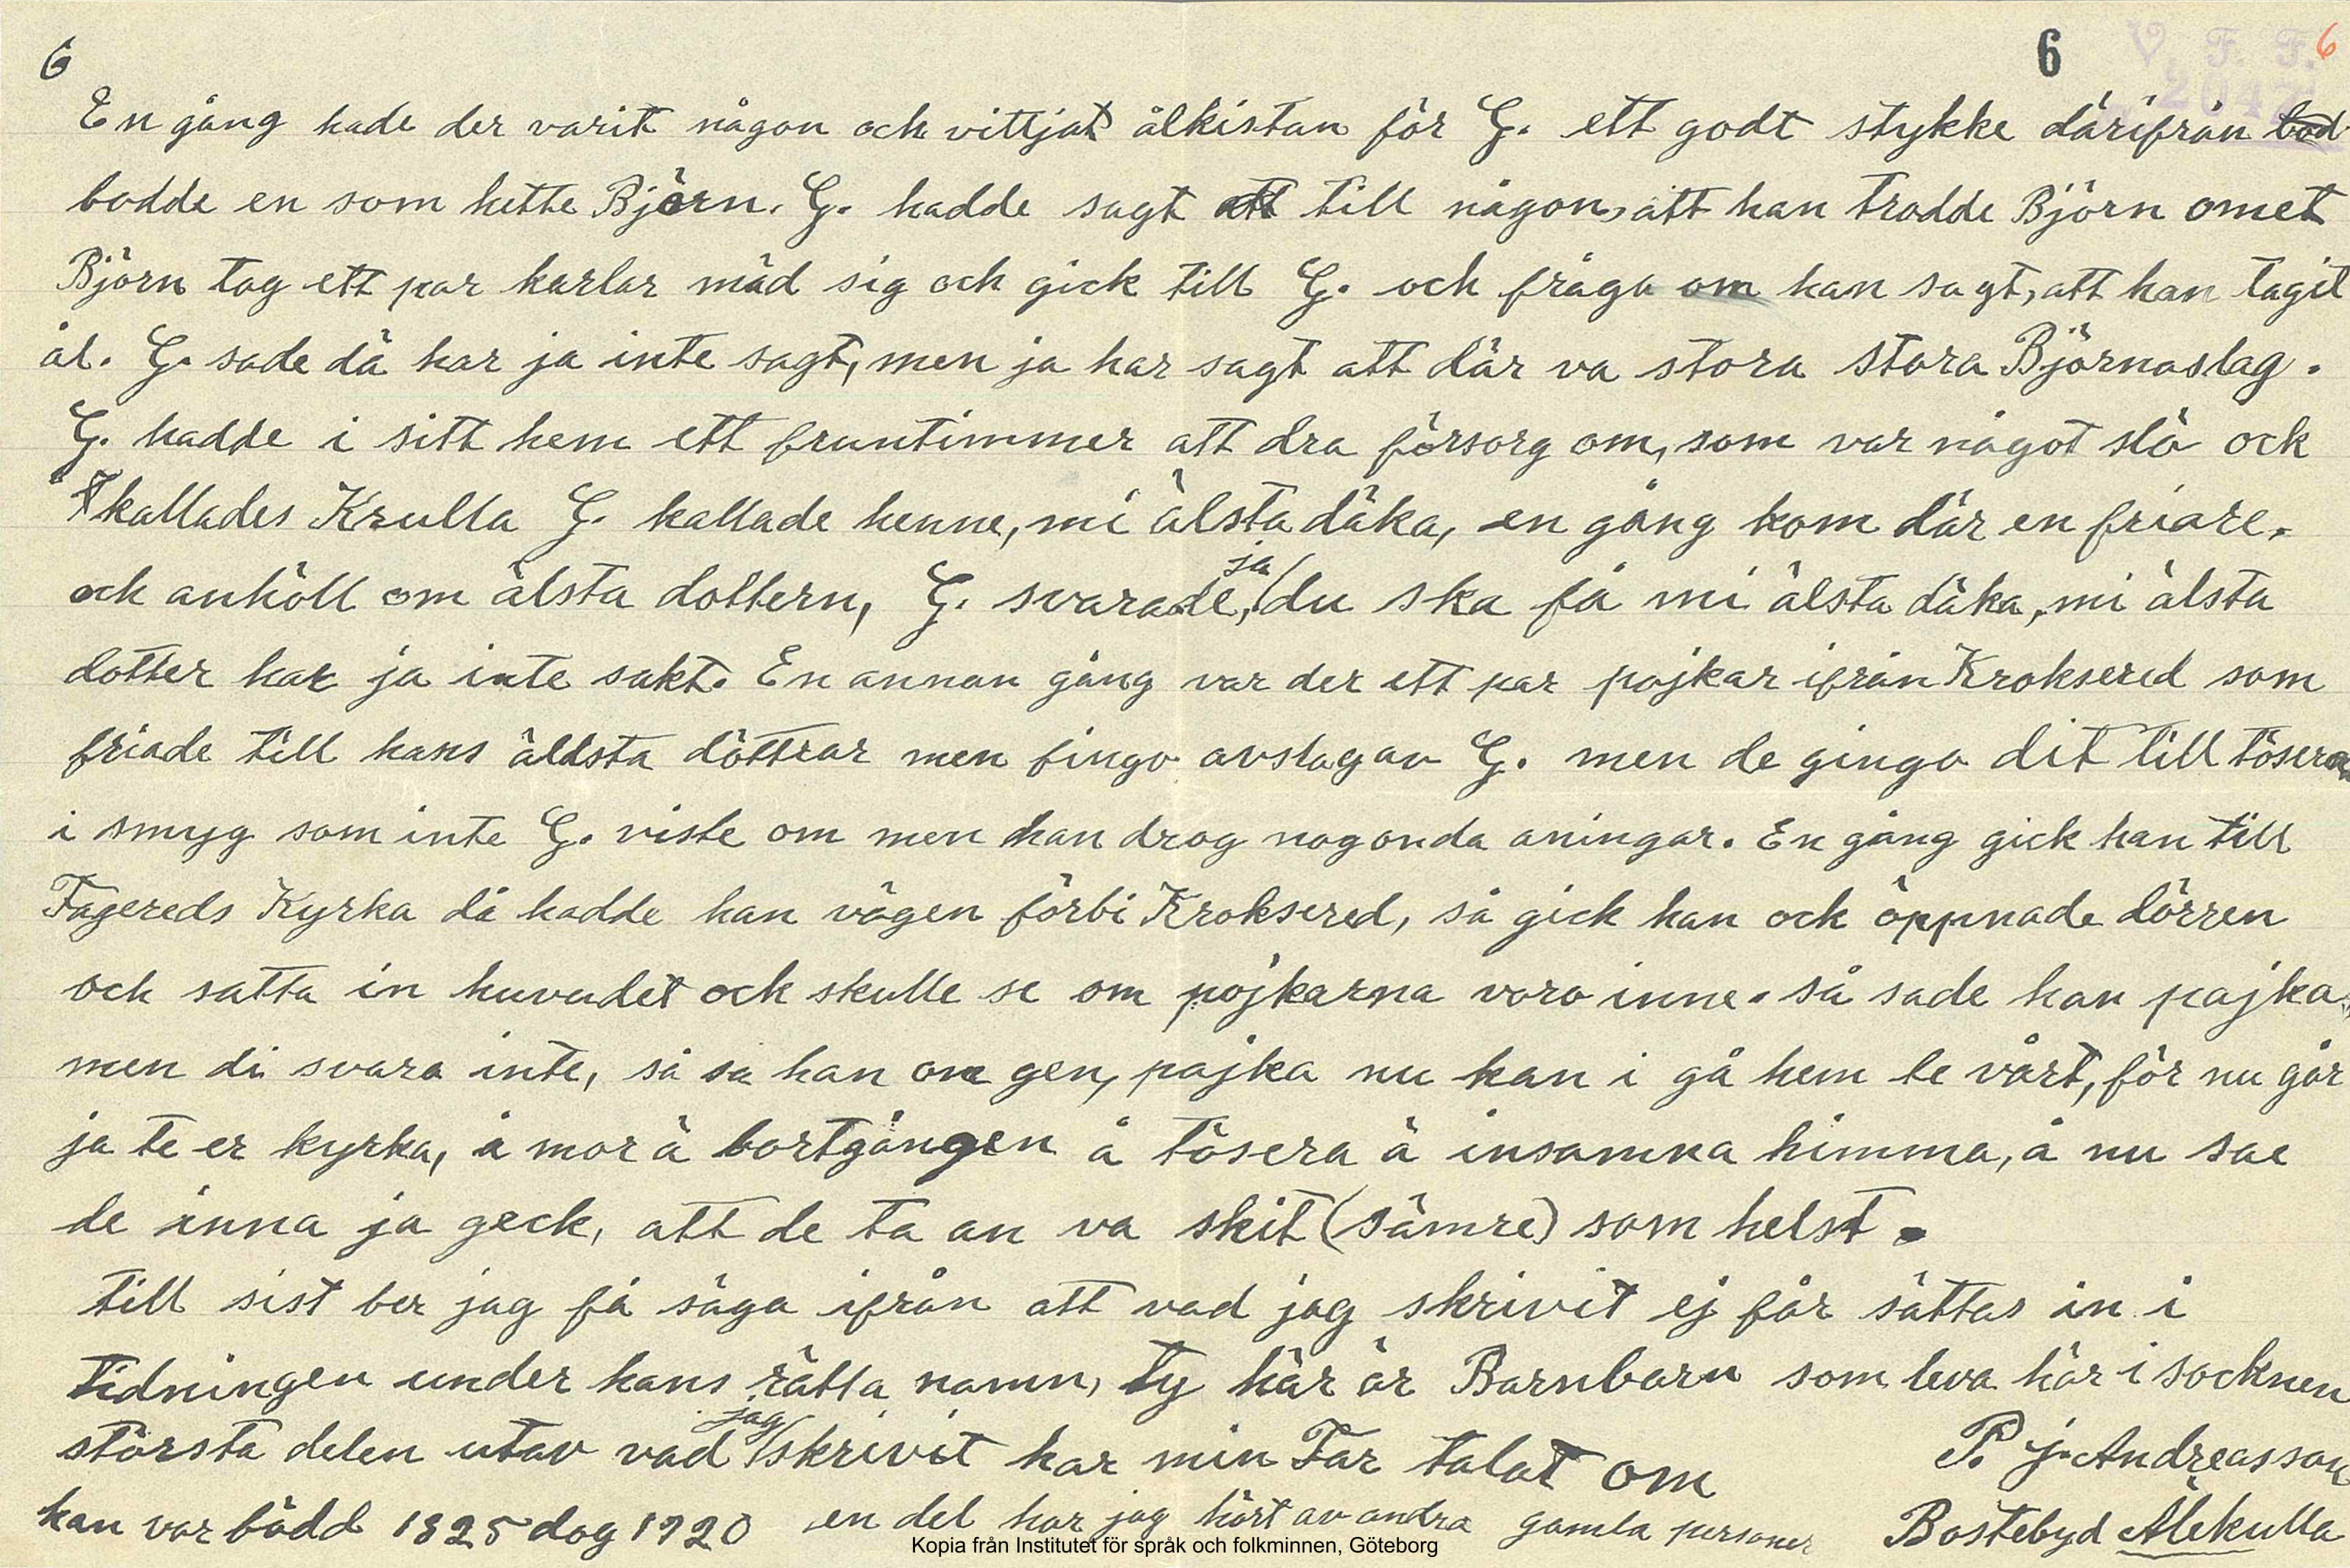 6 6 V. F. F. 6
En gång hade der varit någon och vittjat ålkistan för G. ett godt stykke därifrån bod
bodde en som hette Björn. G. hadde sagt att till någon, att han trodde Björn omet
Björn tog ett par karlar mäd sig och gick till G. och fråga om han sagt, att han tagit
ål. G. sade dä har ja inte sagt, men ja har sagt att där va stora stora Björnaslag.
G. hadde i sitt hem ett fruntimmer att dra försorg om, som var något slö ock
kallades Krulla G. kallade henne, mi älsta däka, en gång kom där en friare.
och anhöll om älsta dottern, G. svarade, ja du ska få mi älsta däka, mi älsta
dotter har ja inte sakt. En annan gång var der ett par pojkar ifrån Kroksered som
friade till hans äldsta döttrar men fingo avslag av G. men de gingo dit till tösera
i smyg som inte G. viste om men han drog nog onda aningar. En gång gick han till
Fagereds Kyrka då hadde han vägen förbi Kroksered, så gick han ock öppnade dörren
och satta in huvudet ock skulle se om pojkarna voro inne. så sade han pojka,
men di svara inte, så sa han om gen, pojka nu kan i gå hem te vårt, för nu går
ja te er kyrka, å mor ä bortgången å tösera ä insamna himma, å nu sae
de inna ja geck, att de ta an va skit (sämre) som helst.
till sist ber jag få säga ifrån att vad jag skrivit ej får sättas in i
tidningen under hans rätta namn, ty här är Barnbarn som leva här i socknen
största delen utav vad jag skrivit har min Far talat om
P. J. Andreasson
han var född 1825 dog 1920 en del har jag hört av andra gamla personer
Bostebyd Älekulla
Kopia från Institutet för språk och folkminnen, Göteborg